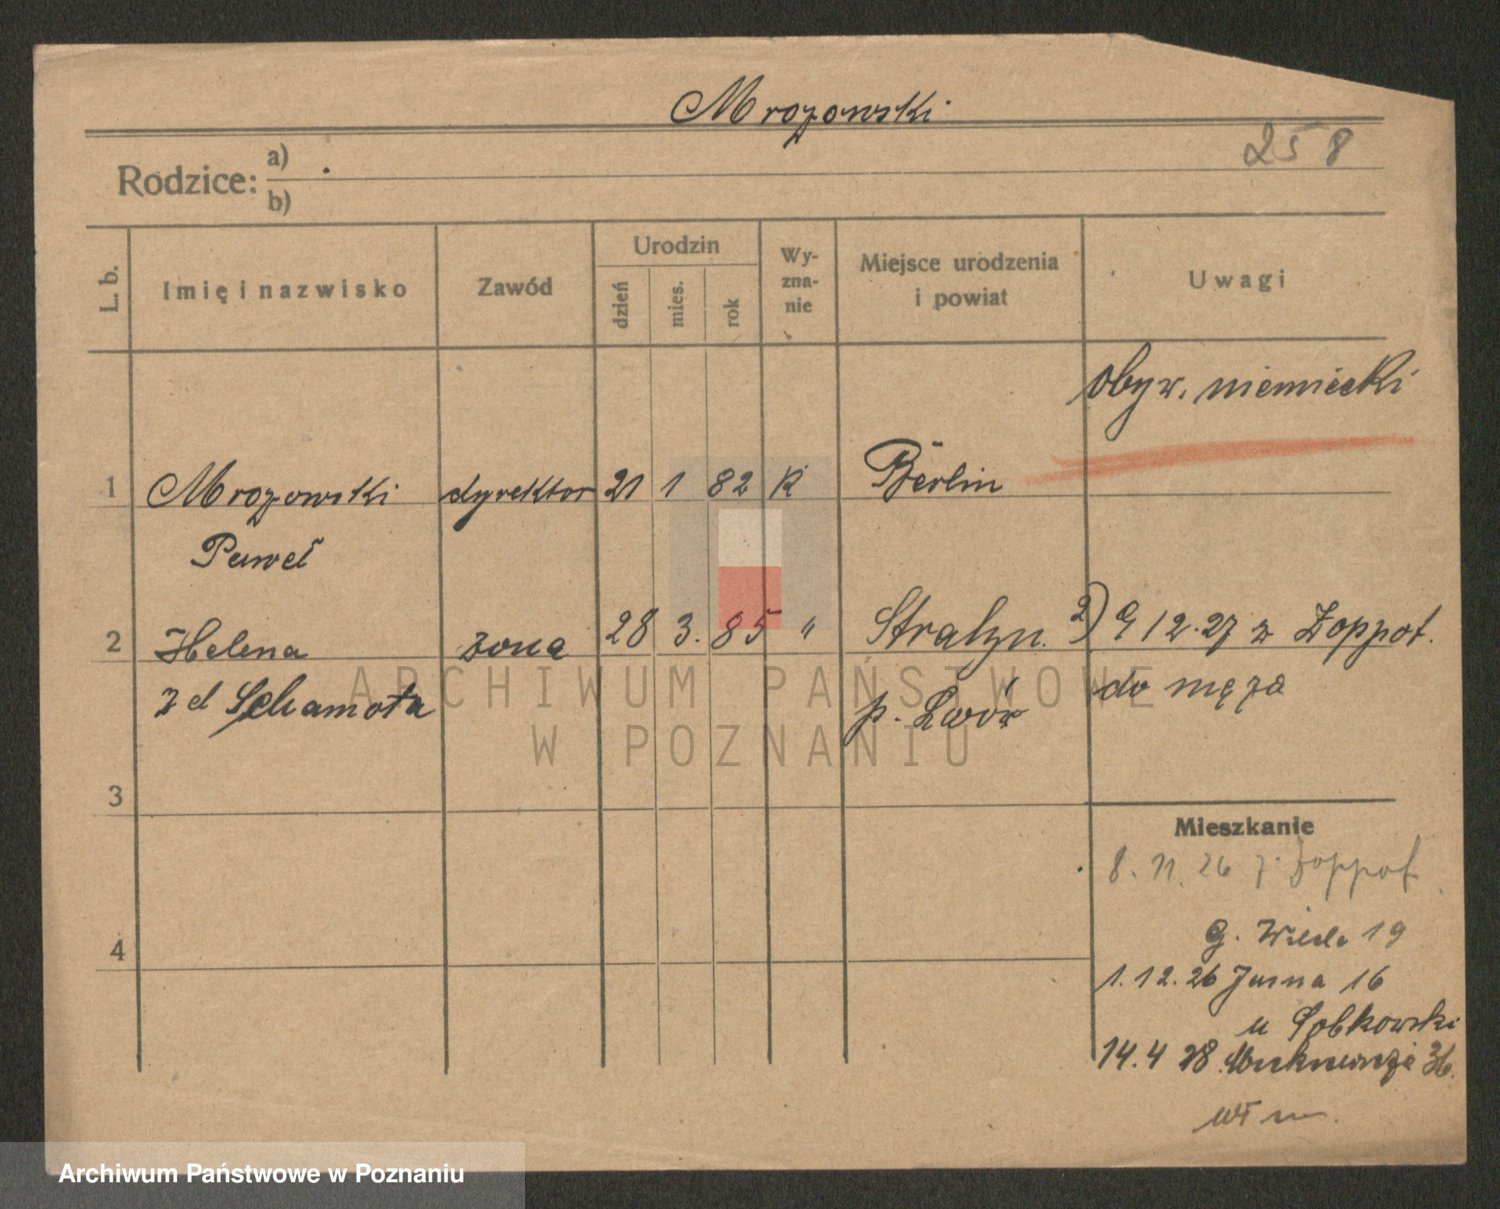 Mrozowski
258
Rodzice: a)
b)
L. b.
Imię i nazwisko
Zawód
Urodzin
dzień
mies.
rok
Wy-
zna-
nie
Miejsce urodzenia
i powiat
Uwagi
obyw. niemiecki
1 Mrozowski dyrektor 21 1 82 K Berlin
Paweł
2 Helena żona 28 3. 85 " 2) 9 12.27 z Zoppot.
zd Schamota p. Lwów do męża
3
4
Mieszkanie
8. 11. 26 z Zoppot
G. Wilda 19
1. 12. 26 Jasna 16
u Sobkowski
14. 4 28
ARCHIWUM PAŃSTWOWE
W POZNANIU
Archiwum Państwowe w Poznaniu